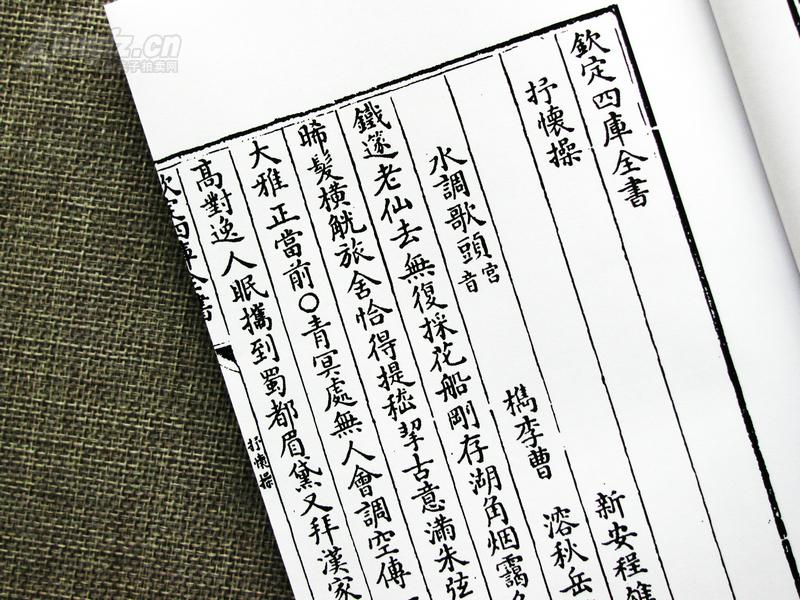 欽定四庫全書
抒懷操
新安程雄
檇李曹
溶秋岳
水調歌頭宮音
鐵篴老仙去無復採花船剛存湖角烟靄
晞髮橫觥旅舍恰得提嵇挈古意滿朱弦
大雅正當前○青冥處無人會調空傳
高對逸人眠攜到蜀都眉黛又拜漢家
欽定四庫全書
抒懷操